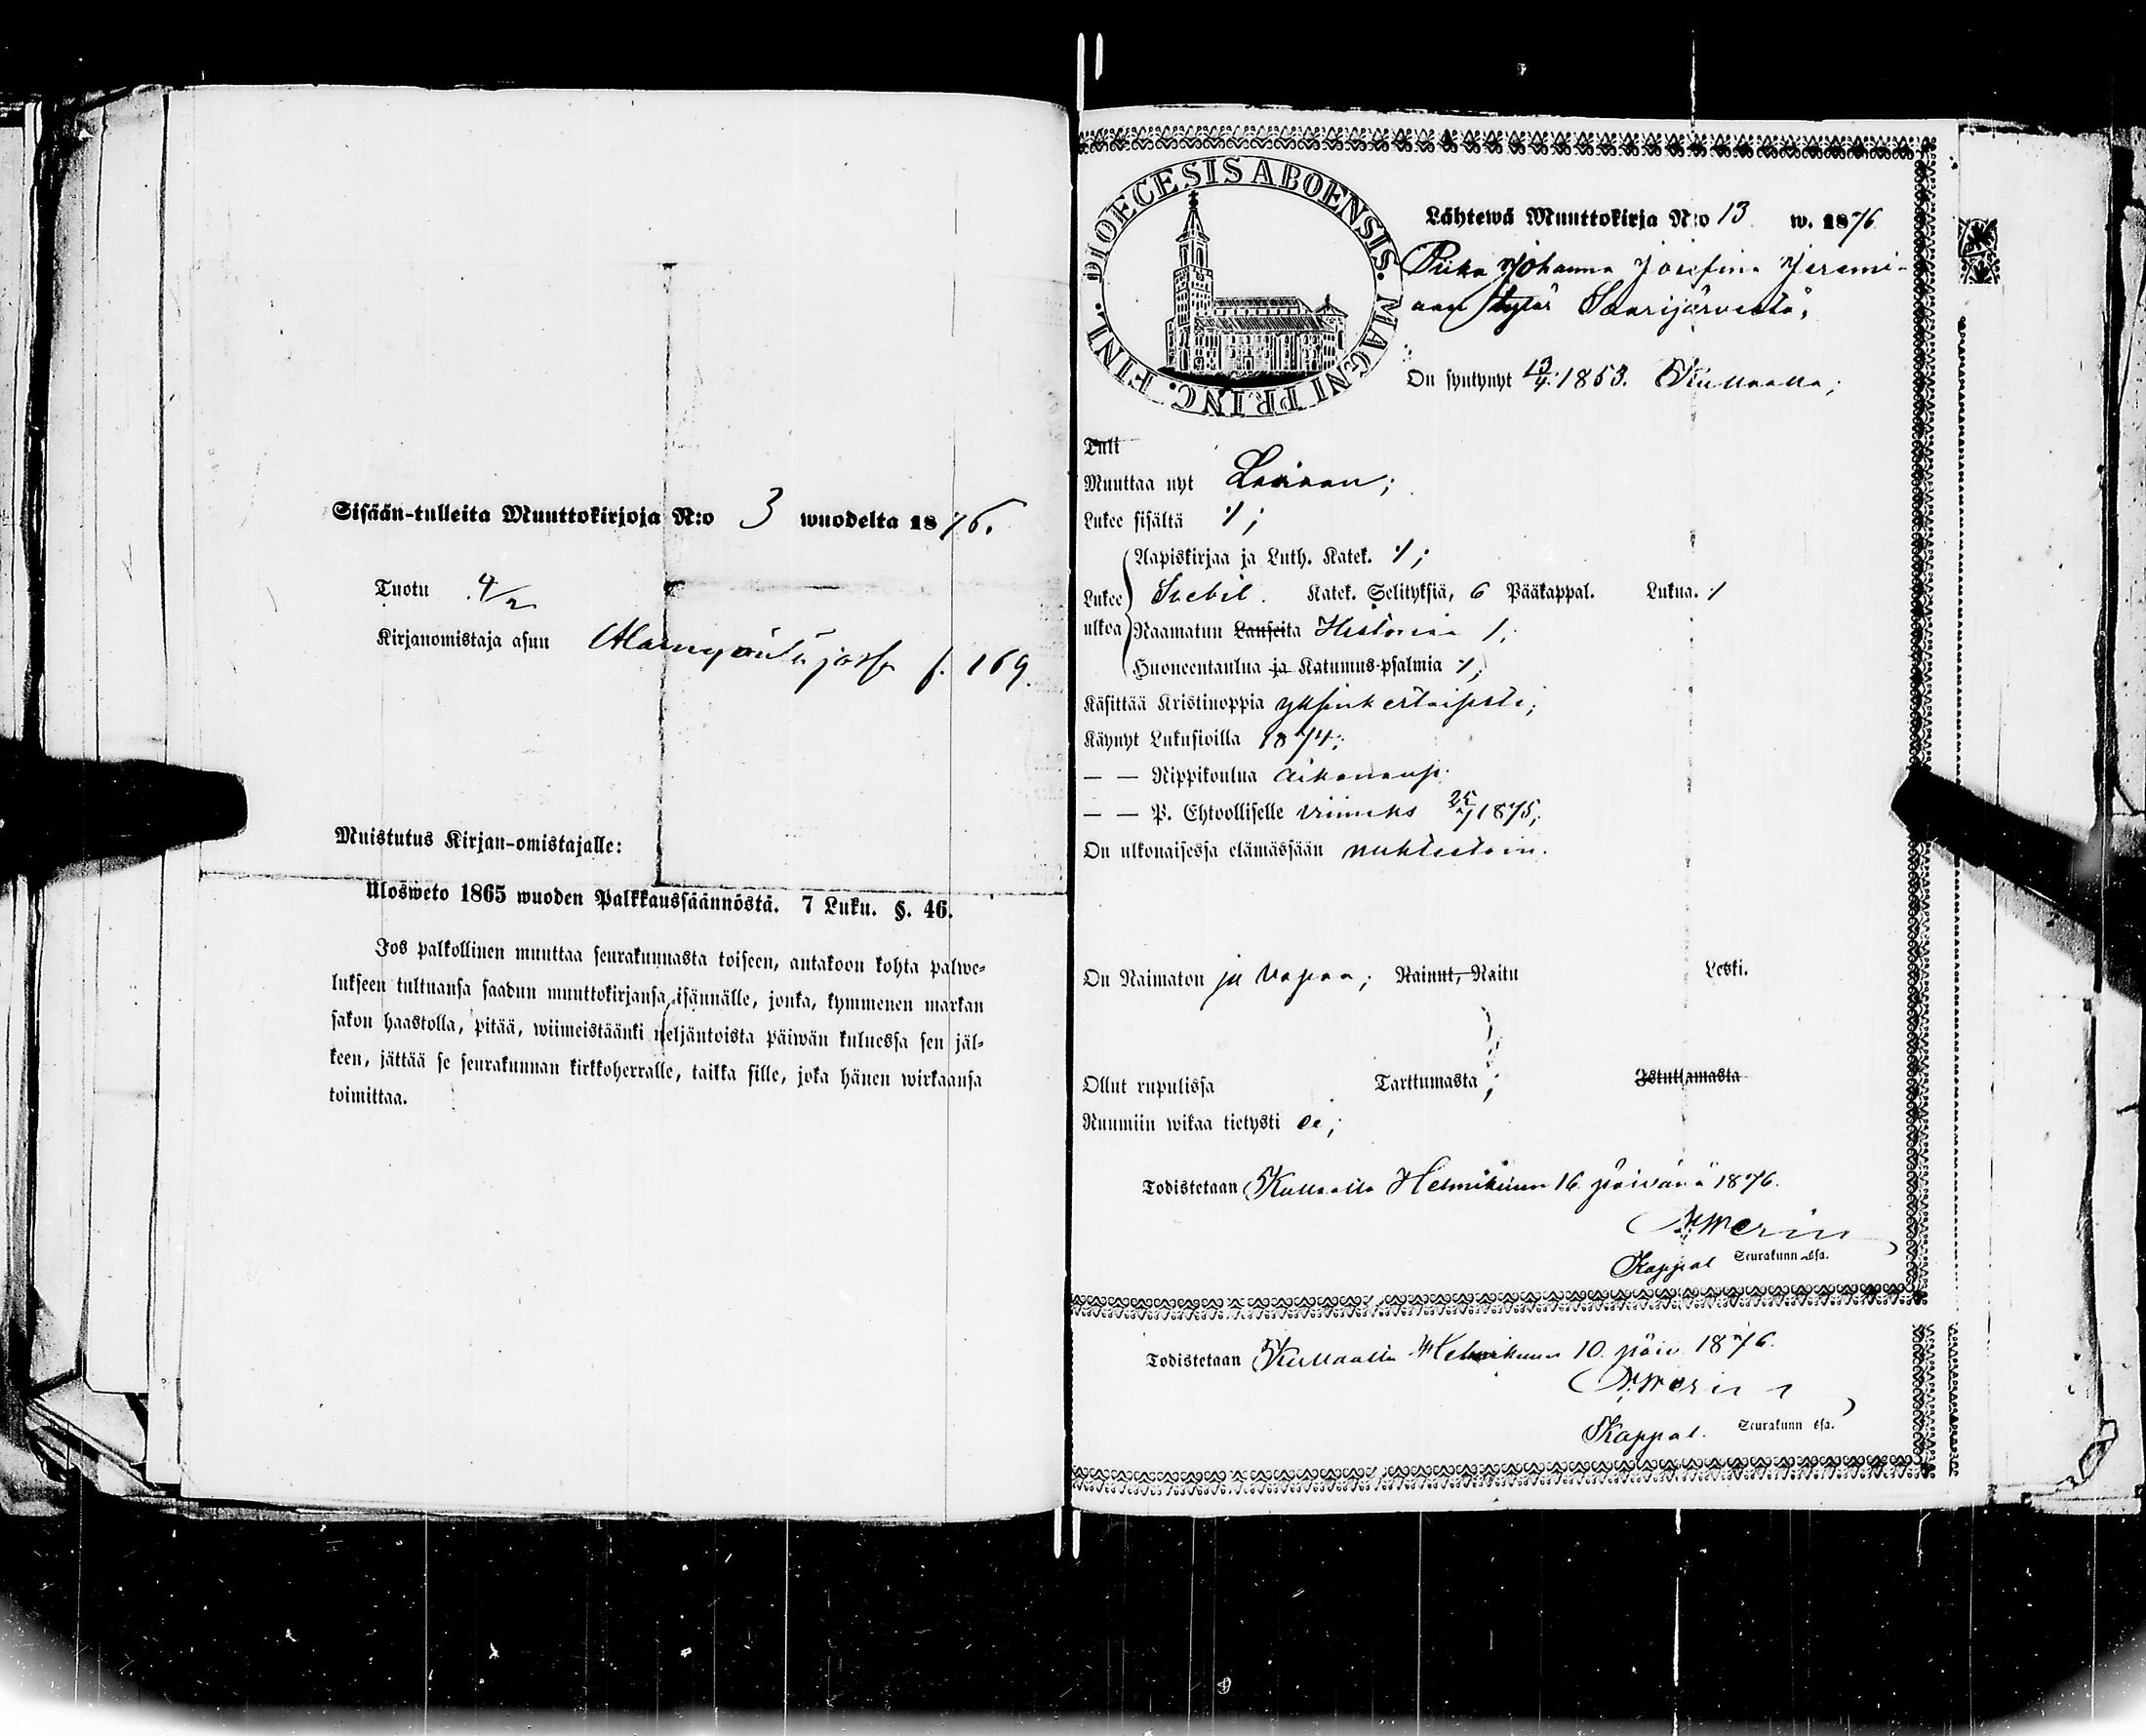 Sisään-tulleita Muuttokirjoja N:o 3 wuodelta 1876.
Tuotu 4/2
Kirjanomistaja asuu f. 169.
Muistutus Kirjan-omistajalle:
Ulosweto 1865 wuoden Palkkaussäännöstä. 7 Luku. §. 46.
Jos palkollinen muuttaa seurakunnasta toiseen, antakoon kohta palwe-
lukseen tultuansa saadun muuttokirjansa isännälle, jonka, kymmenen markan
sakon haastolla, pitää, wiimeistäänki neljäntoista päiwän kuluessa sen jäl-
keen, jättää se seurakunnan kirkkoherralle, taikka sille, joka hänen wirkaansa
toimittaa.
DIOECESIS ABOENSIS. MAGNI PRINC. FINL.
Lähtewä Muuttokirja N:o 13 w. 1876
Piika Johanna Josefina Jeremi-
aan tytär Saarijärveltä;
On syntynyt 13/4 1853. Kullaalla;
Tuli
Muuttaa nyt
Lukee sisältä ⁒;
Aapiskirjaa ja Luth. Katek. ⁒;
Lukee Svebil. Katek. Selityksiä, 6 Pääkappal. Lukua. ⁒
ulkoa Raamatun Lauseita Historiaa 1;
Huoneentaulua ja Katumus-psalmia ⁒;
Käsittää Kristinoppia yksinkertaisesti;
Käynyt Lukusioilla 1874;
— — Rippikoulua
— — P. Ehtoolliselle viimeks 25/7 1875;
On ulkonaisessa elämässään nuhteetoin.
On Naimaton ja vapaa; Nainut, Naitu Leski.
Ollut rupulissa Tarttumasta; Istuttamasta
Ruumiin wikaa tietysti ei;
Todistetaan Kullaalla Helmikuun 16 päivänä 1876.
Kappal Seurakunn ssa.
Todistetaan Kullaalla Helmikuun 10. päiv 1876.
Kappal. Seurakunn ssa.